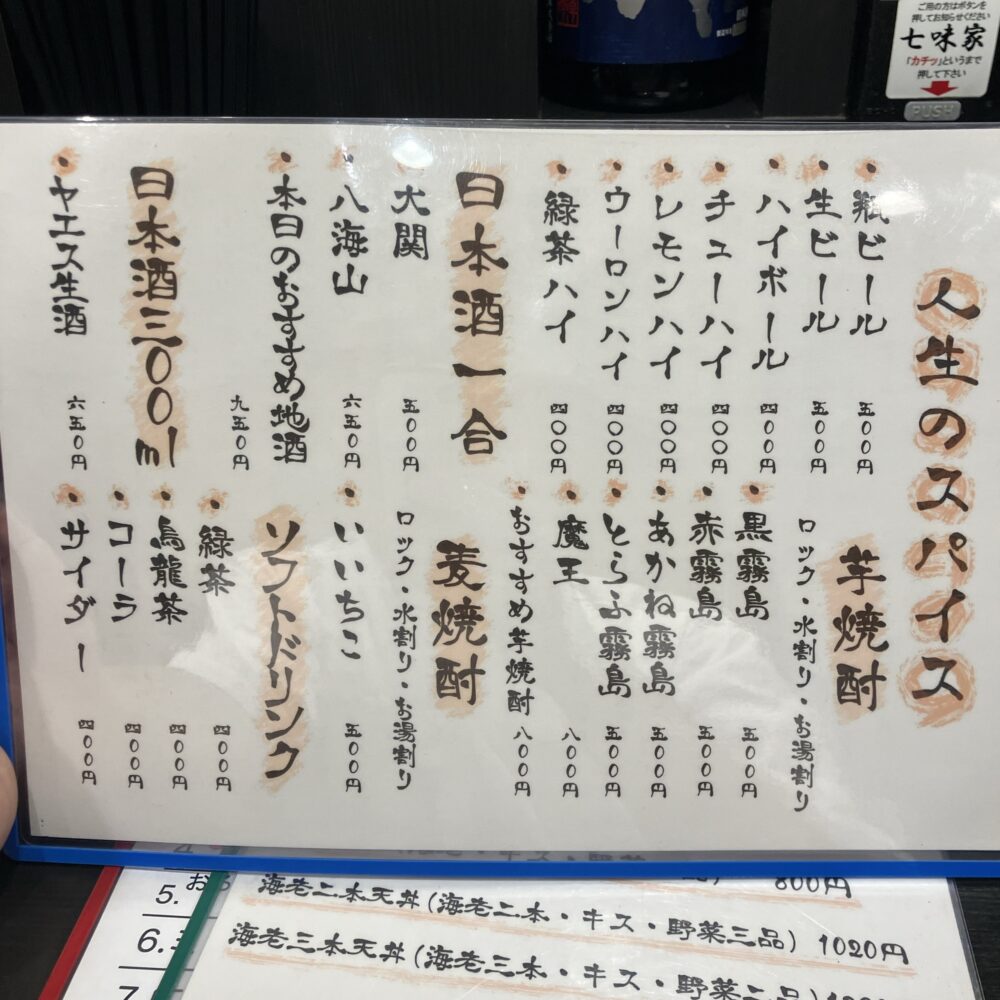 ご用の方はボタンを
押してお知らせください
七味家
「カチッ」というまで
押して下さい
PUSH
人生のスパイス
瓶ビール 五〇〇円
生ビール 五〇〇円
ハイボール 四〇〇円
チューハイ 四〇〇円
レモンハイ 四〇〇円
ウーロンハイ 四〇〇円
緑茶ハイ 四〇〇円
日本酒一合
大関 五〇〇円
八海山 六五〇円
本日のおすすめ地酒 九五〇円
日本酒三〇〇ml
ヤエス生酒 六五〇円
芋焼酎
ロック・水割り・お湯割り
黒霧島 五〇〇円
赤霧島 五〇〇円
あかね霧島 五〇〇円
とらふ霧島 五〇〇円
魔王 八〇〇円
おすすめ芋焼酎 八〇〇円
麦焼酎
ロック・水割り・お湯割り
いいちこ 五〇〇円
ソフトドリンク
緑茶 四〇〇円
烏龍茶 四〇〇円
コーラ 四〇〇円
サイダー 四〇〇円
800円
海老二本天丼(海老二本・キス・野菜三品) 1020円
海老三本天丼(海老三本・キス・野菜二品)
5. お
6.
7.